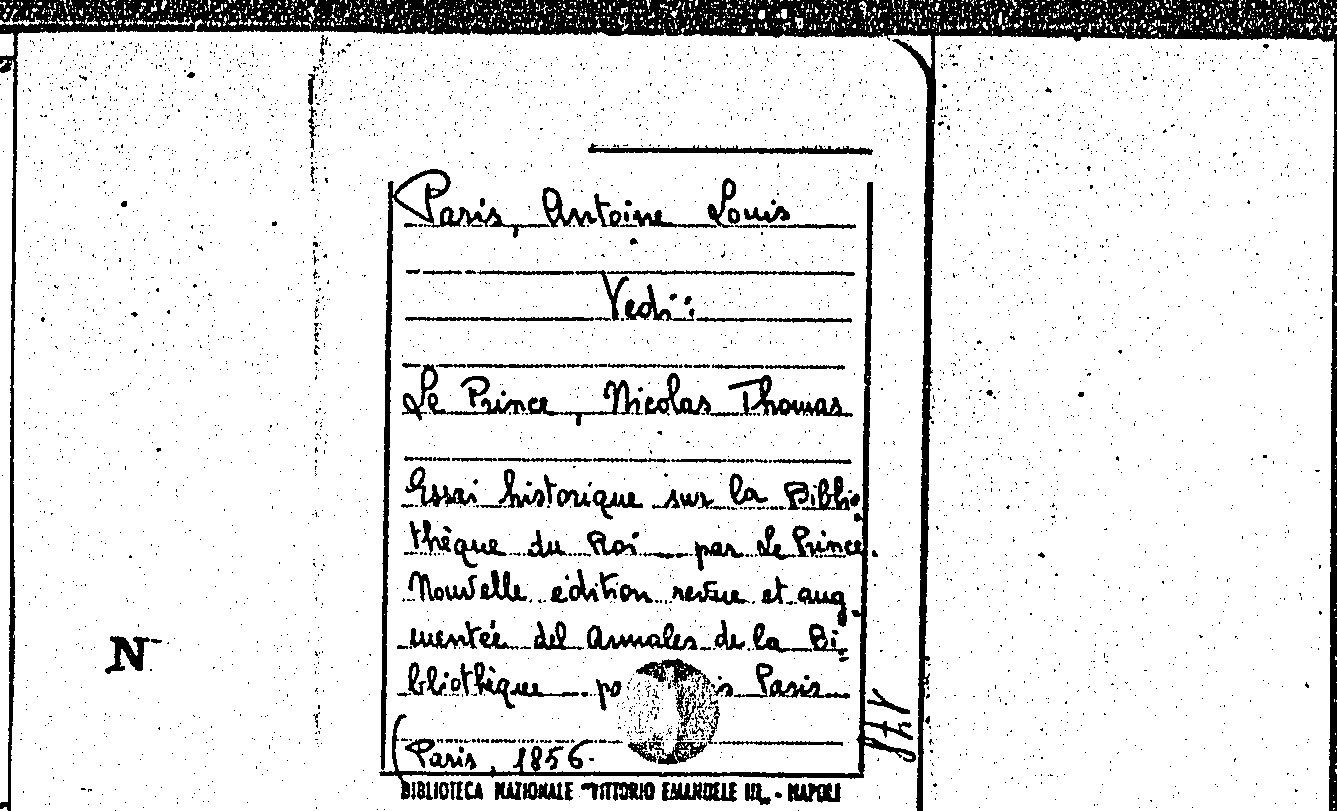 Paris, Antoine Louis
Vedi:
Le Prince, Nicolas Thomas
Essai historique sur la Biblio-
thèque du Roi par Le Prince.
Nouvelle édition revue et aug-
mentée del Annales de la Bi-
bliothèque Paris
(Paris, 1856.
BIBLIOTECA NAZIONALE "VITTORIO EMANUELE III" - NAPOLI
N